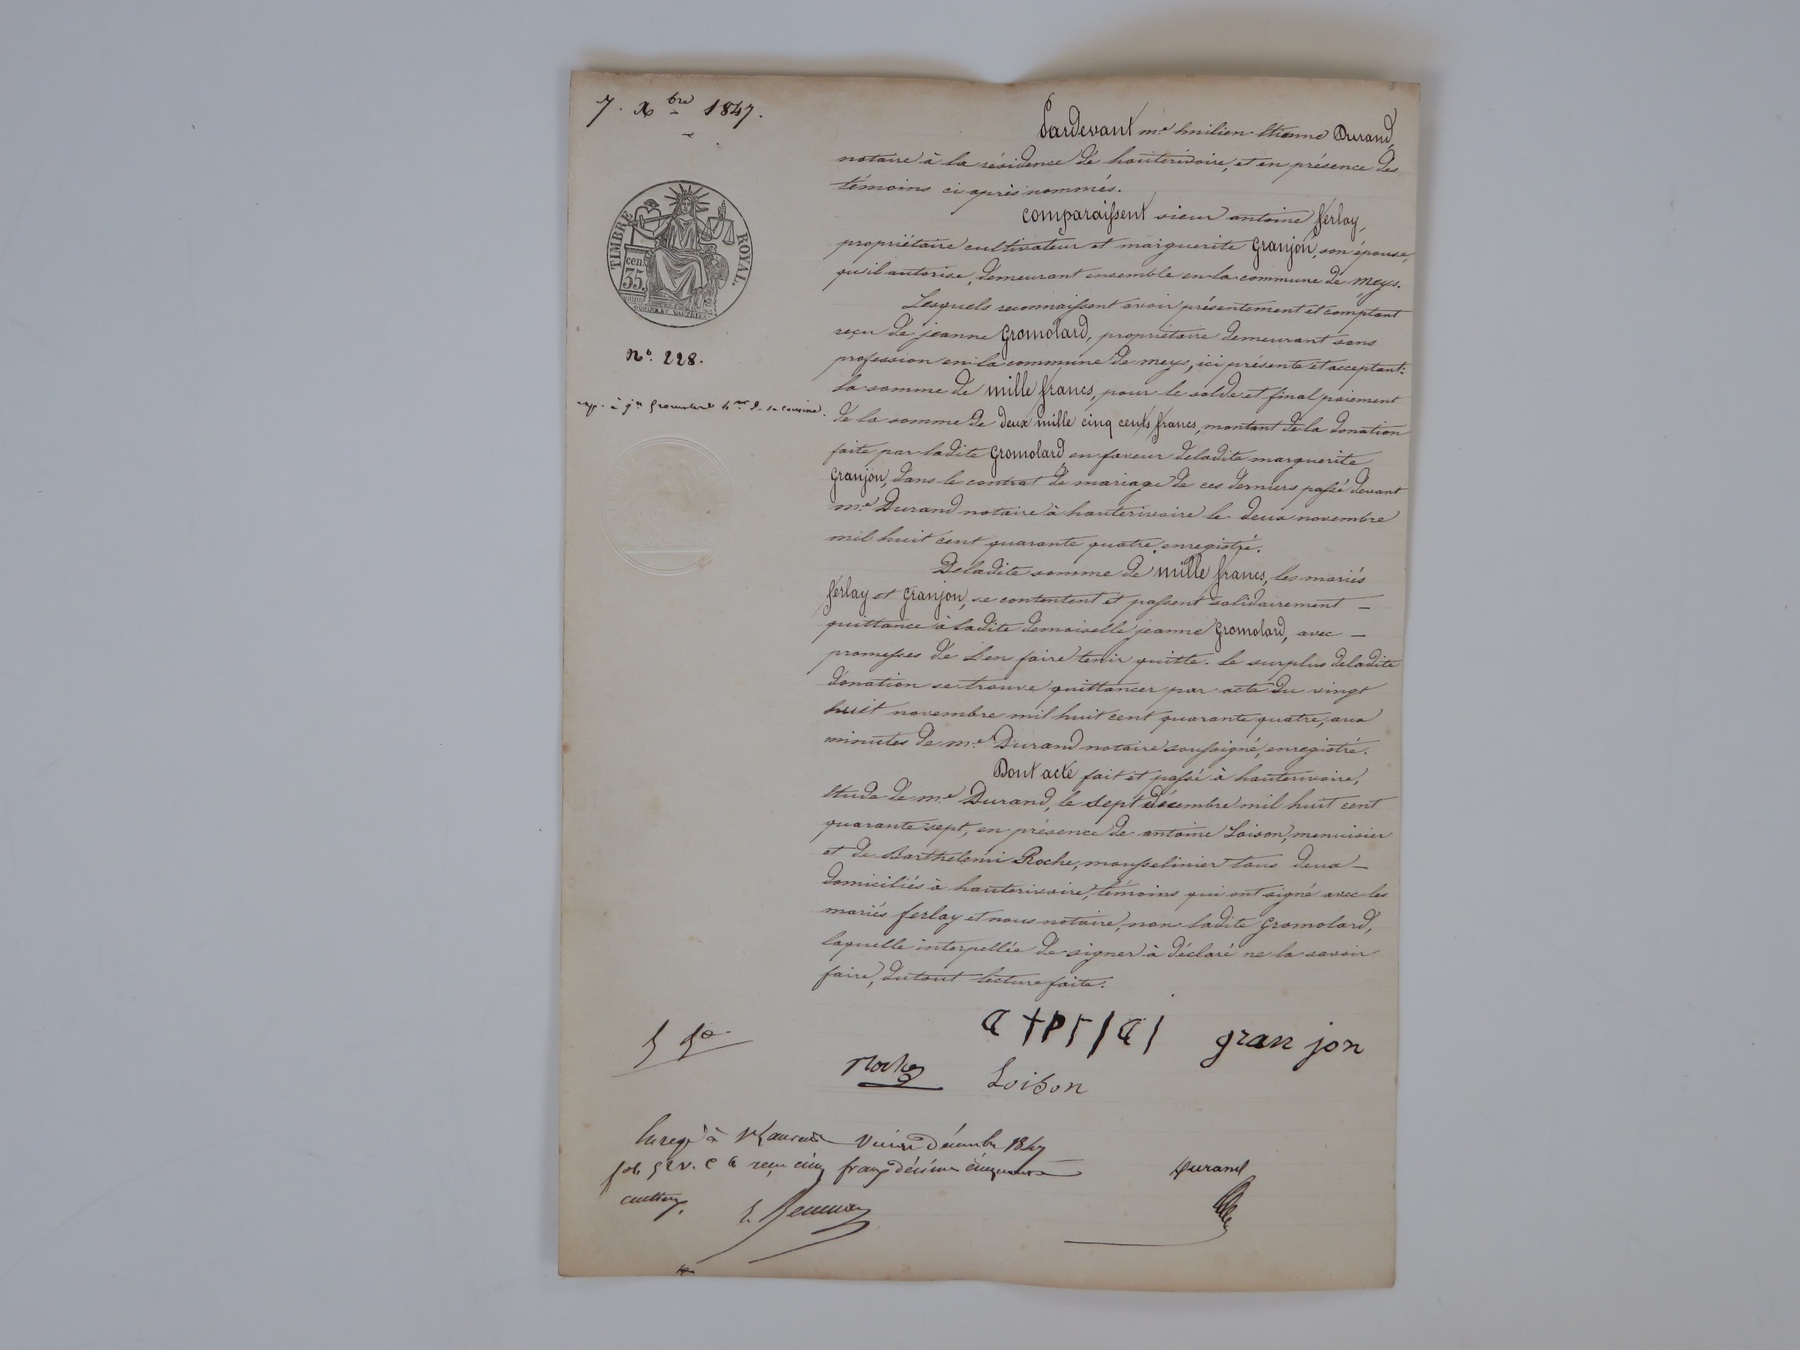 7. Xbre 1847.
Pardevant me huilien Etienne Durand,
notaire à la résidence de hauterivoire, et en présence des
témoins ci après nommés.
comparaissent sieur antoine ferlay,
propriétaire cultivateur et marguerite Granjon, son épouse,
qu'il autorise, demeurant ensemble en la commune de meys.
Lesquels reconnaissent avoir présentement et comptant
reçu de jeanne Gromolard, propriétaire demeurant sans
profession en la commune de meys, ici présente et acceptant:
la somme de mille francs, pour le solde et final paiement
de la somme de deux mille cinq cents francs, montant de la donation
faite par ladite Gromolard en faveur de ladite marguerite
Granjon, dans le contrat de mariage de ces derniers passé devant
me Durand notaire à hauterivoire le deux novembre
mil huit cent quarante quatre, enregistré.
De ladite somme de mille francs, les mariés
ferlay et Granjon, se contentent et passent solidairement –
quittance à ladite demoiselle jeanne Gromolard, avec –
promesses de l'en faire tenir quitte. Le surplus de ladite
donation se trouve quittancer par acte du vingt
huit novembre mil huit cent quarante quatre, aux
minutes de me Durand notaire soussigné, enregistré.
Dont acte fait et passé à hauterivoire,
Etude de me Durand, le sept décembre mil huit cent
quarante sept, en présence de antoine Loison, menuisier
et de Barthelemi Roche, mousselinier tous deux –
domiciliés à hauterivoire, témoins qui ont signé avec les
mariés ferlay et nous notaire, non ladite Gromolard,
laquelle interpellée de signer à déclaré ne la savoir
faire, du tout lecture faite.
TIMBRE ROYAL.
cen. 35.
No. 228.
exp. à jne Gromolard
granjon
Roche Loison
Enregé à St Laurent décembre 1847
reçu cinq francs décime cinquante
centimes.
Durand